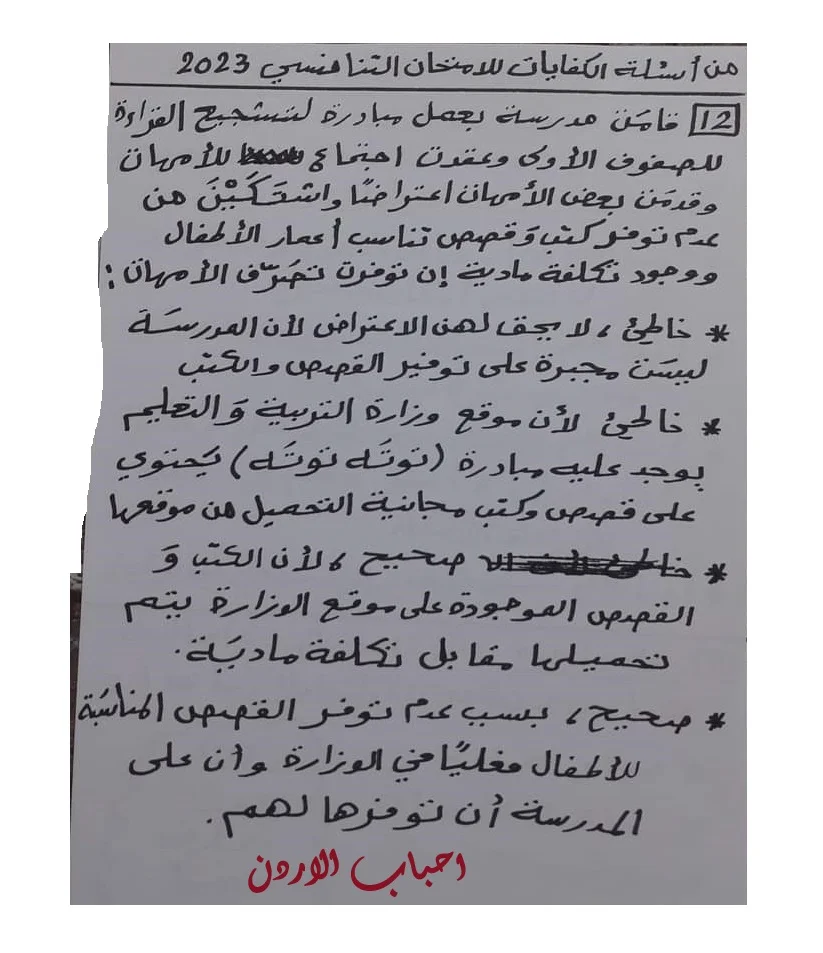 من أسئلة الكفايات للامتحان التنافسي 2023
12 قامَت مدرسة بعمل مبادرة لتشجيع القراءة
للصفوف الأولى وعقدت اجتماع للأمهات
وقدمَت بعض الأمهات اعتراضًا واشتَكَيْنَ من
عدم توفر كتب وَ قصص تناسب أعمار الأطفال
ووجود تكلفة مادية إن توفرت تصَرّف الأمهات :
* خاطئ ، لا يحق لهن الاعتراض لأن المدرسَة
ليسَت مجبرة على توفير القصص والكتب
* خاطئ لأن موقع وزارة التربية وَ التعليم
يوجد عليه مبادرة (توتَه توتَه) يَحتوي
على قصص وكتب مجانية التحميل من موقعها
* صحيح ، لأن الكتب وَ
القصص الموجودة على موقع الوزارة يتم
تحميلها مقابل تكلفة ماديَة .
* صحيح ، بسبب عدم توفر القصص المناسَبة
للأطفال فعليًا في الوزارة وأن على
المدرسة أن توفرها لهم .
احباب الاردن